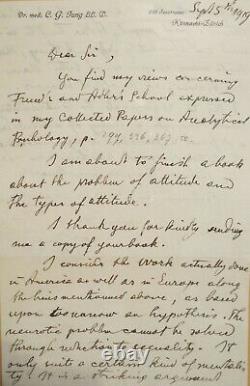 Dr. med. C. G. Jung LL. D.
Sept 5th 1919
Küsnacht-Zürich
Dear Sir,
You find my views concerning
Freud's and Adler's School expressed
in my Collected Papers on Analytical
Psychology, p.
I am about to finish a book
about the problem of attitude and
the types of attitude.
I thank you for kindly sending
me a copy of your book.
I consider the work actually done
in America as well as in Europe along
the lines mentionned above, as based
upon too narrow an hypothesis. The
neurotic problem cannot be solved
through reduction to sexuality. It
only suits a certain kind of mentali-
ty. It is a striking argument